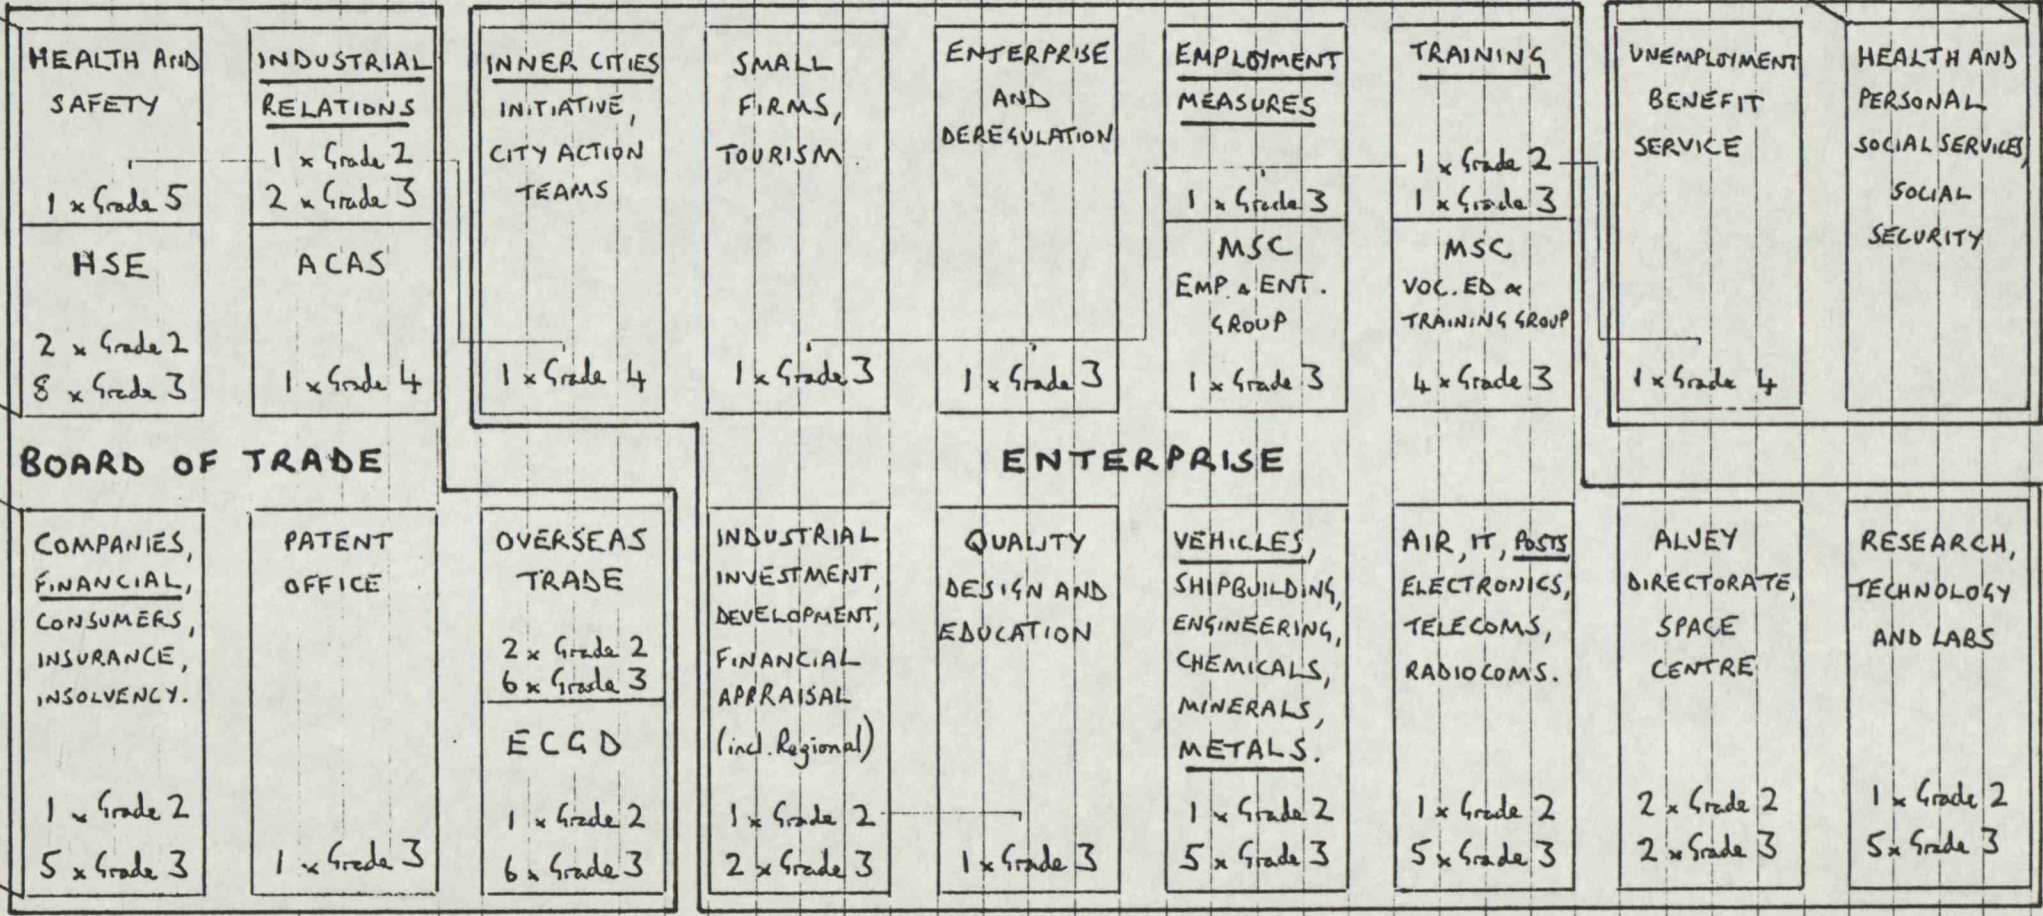 HEALTH AND
SAFETY
1 x Grade 5
HSE
2 x Grade 2
8 x Grade 3
INDUSTRIAL
RELATIONS
1 x Grade 2
2 x Grade 3
ACAS
1 x Grade 4
INNER CITIES
INITIATIVE,
CITY ACTION
TEAMS
1 x Grade 4
SMALL
FIRMS,
TOURISM.
1 x Grade 3
ENTERPRISE
AND
DEREGULATION
1 x Grade 3
EMPLOYMENT
MEASURES
1 x Grade 3
MSC
EMP. & ENT.
GROUP
1 x Grade 3
TRAINING
1 x Grade 2
1 x Grade 3
MSC
VOC. ED &
TRAINING GROUP
4 x Grade 3
UNEMPLOYMENT
BENEFIT
SERVICE
1 x Grade 4
HEALTH AND
PERSONAL
SOCIAL SERVICES,
SOCIAL
SECURITY
BOARD OF TRADE
ENTERPRISE
COMPANIES,
FINANCIAL,
CONSUMERS,
INSURANCE,
INSOLVENCY.
1 x Grade 2
5 x Grade 3
PATENT
OFFICE
1 x Grade 3
OVERSEAS
TRADE
2 x Grade 2
6 x Grade 3
ECGD
1 x Grade 2
6 x Grade 3
INDUSTRIAL
INVESTMENT,
DEVELOPMENT,
FINANCIAL
APPRAISAL
(incl. Regional)
1 x Grade 2
2 x Grade 3
QUALITY
DESIGN AND
EDUCATION
1 x Grade 3
VEHICLES,
SHIPBUILDING,
ENGINEERING,
CHEMICALS,
MINERALS,
METALS.
1 x Grade 2
5 x Grade 3
AIR, IT, POSTS
ELECTRONICS,
TELECOMS,
RADIOCOMS.
1 x Grade 2
5 x Grade 3
ALVEY
DIRECTORATE,
SPACE
CENTRE
2 x Grade 2
2 x Grade 3
RESEARCH,
TECHNOLOGY
AND LABS
1 x Grade 2
5 x Grade 3